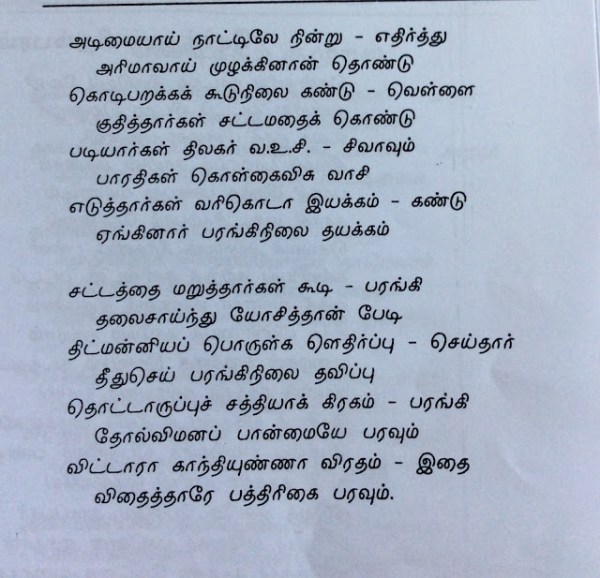 அடிமையாய் நாட்டிலே நின்று - எதிர்த்து
அரிமாவாய் முழக்கினான் தொண்டு
கொடிபறக்கக் கூடுநிலை கண்டு - வெள்ளை
குதித்தார்கள் சட்டமதைக் கொண்டு
படியார்கள் திலகர் வ.உ.சி. - சிவாவும்
பாரதிகள் கொள்கைவிசு வாசி
எடுத்தார்கள் வரிகொடா இயக்கம் - கண்டு
ஏங்கினார் பரங்கிநிலை தயக்கம்
சட்டத்தை மறுத்தார்கள் கூடி - பரங்கி
தலைசாய்ந்து யோசித்தான் பேடி
திட்மன்னியப் பொருள்க ளெதிர்ப்பு - செய்தார்
தீதுசெய் பரங்கிநிலை தவிப்பு
தொட்டாருப்புச் சத்தியாக் கிரகம் - பரங்கி
தோல்விமனப் பான்மையே பரவும்
விட்டாரா காந்தியுண்ணா விரதம் - இதை
விதைத்தாரே பத்திரிகை பரவும்.